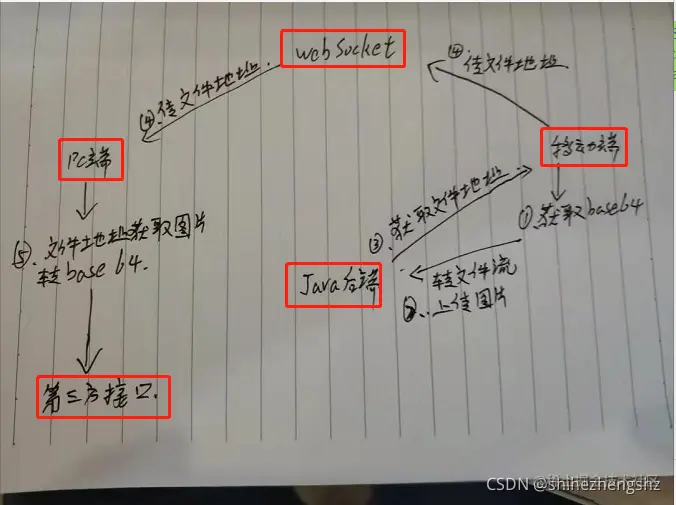 webSocket
④传文件地址
④.传文件地址.
PC端
移动端
①获取base64
③获取文件地址
⑤.文件地址获取图片
转base 64.
Java后端
转文件流
②、上传图片
第三方接口.
CSDN @shinezhengshz